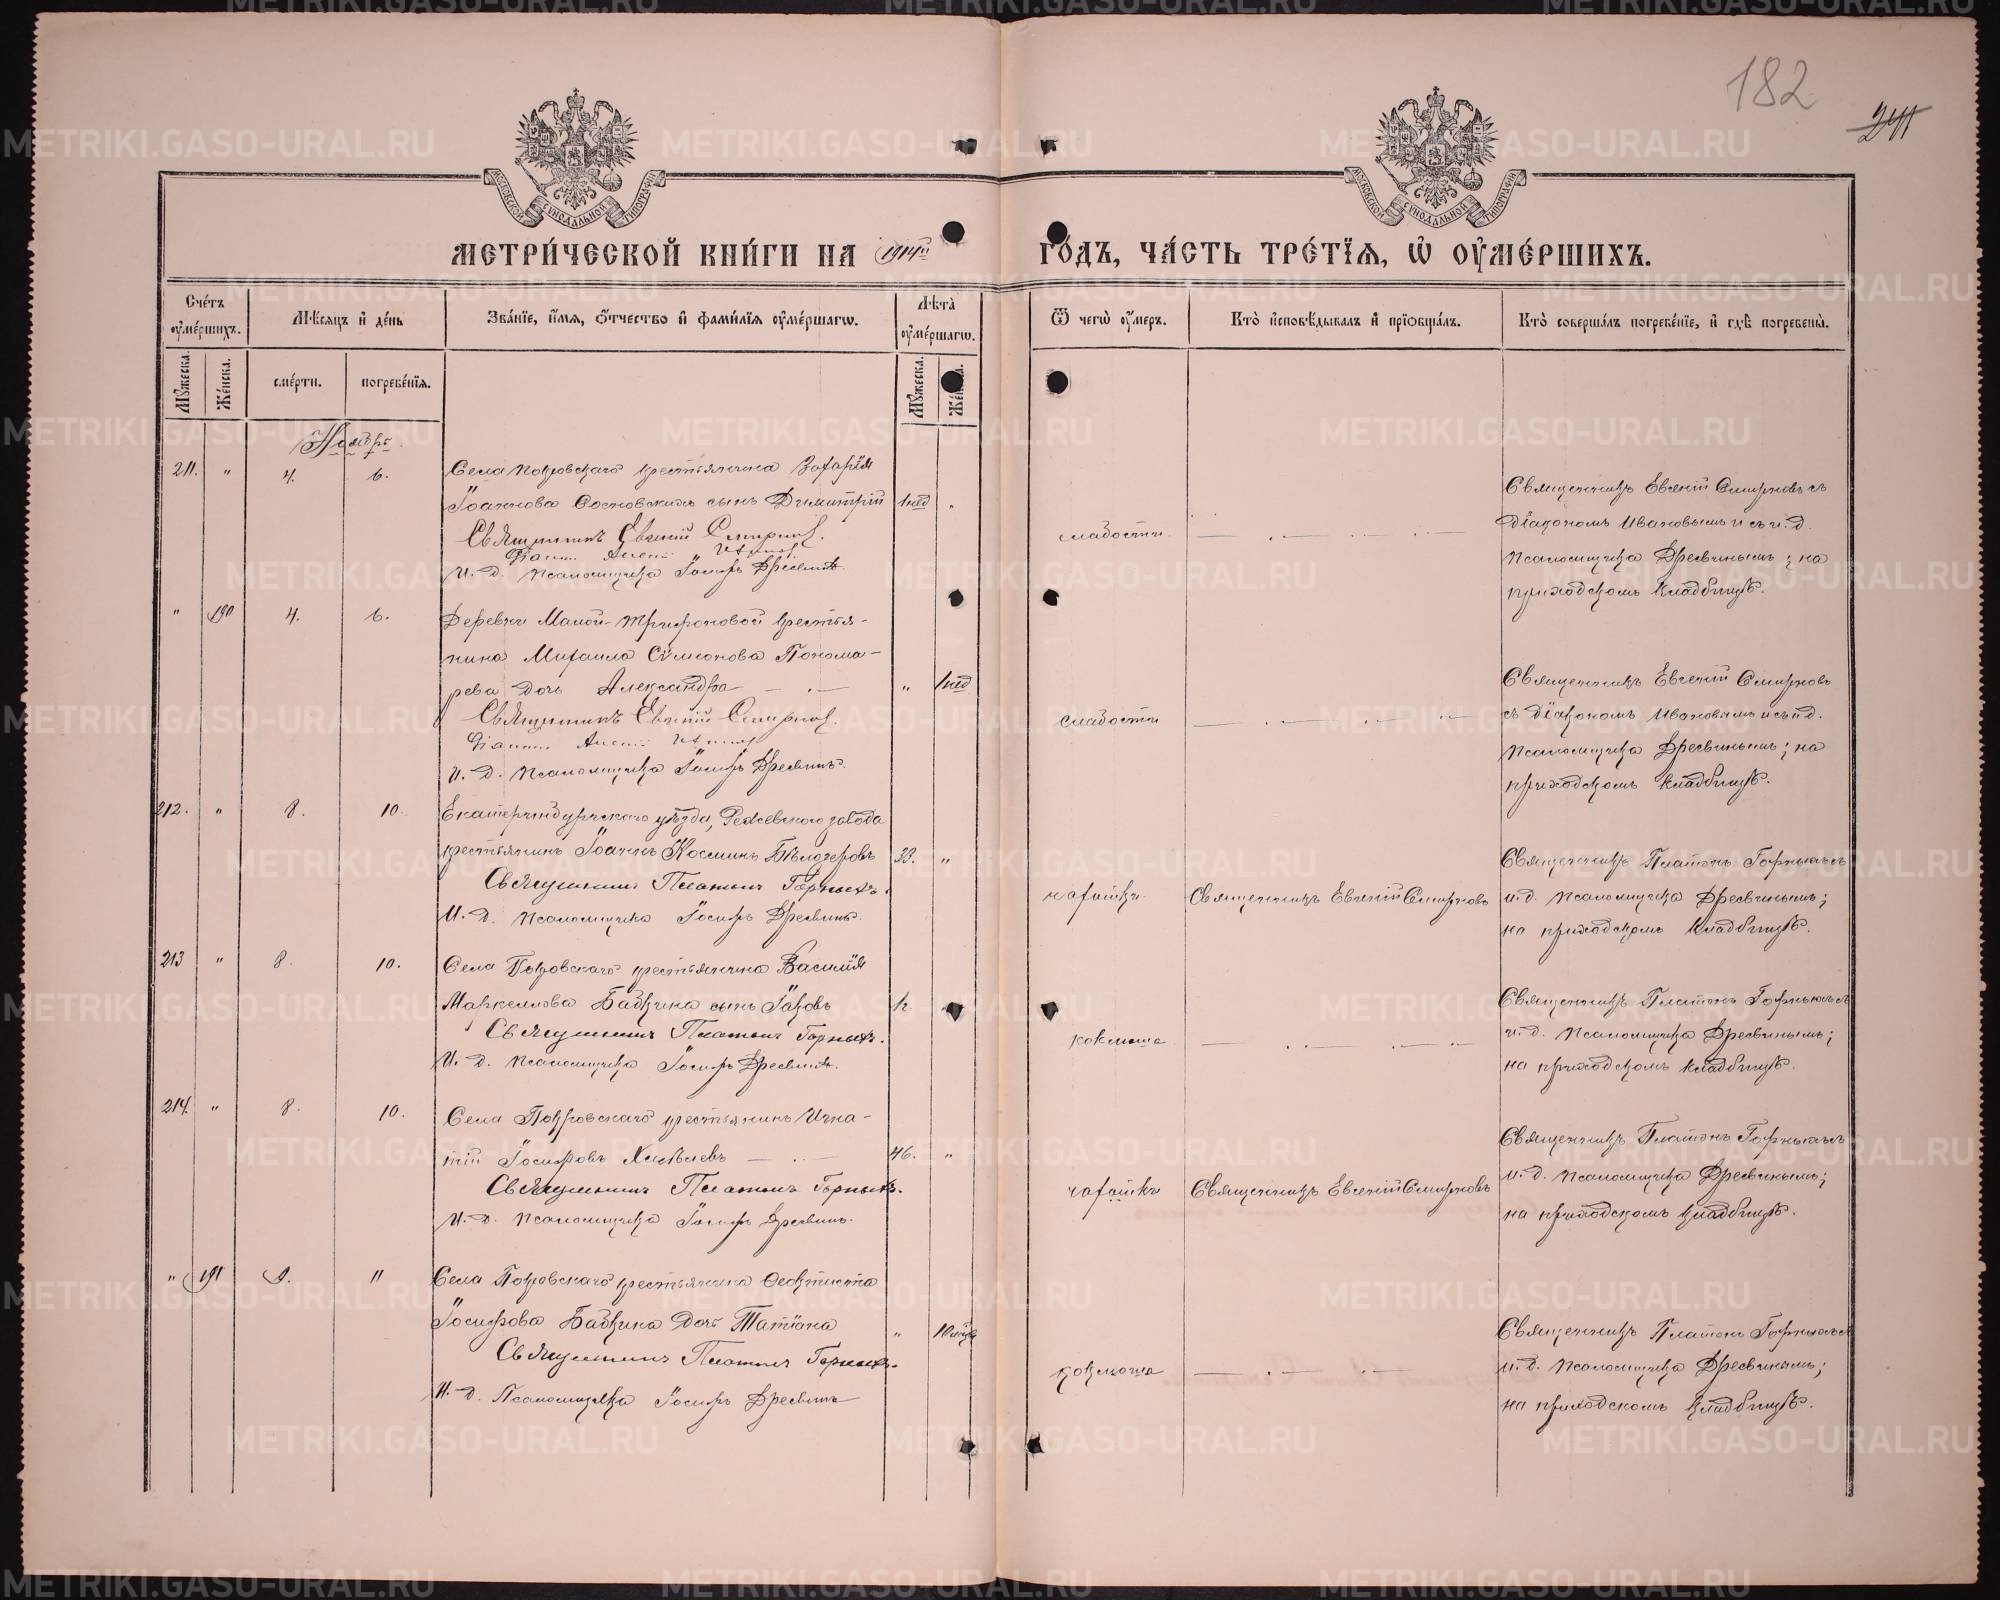 182
241
МОСКОВСКОЙ СѴНОДАЛЬНОЙ ТИПОГРАФІИ
МОСКОВСКОЙ СѴНОДАЛЬНОЙ ТИПОГРАФІИ
МЕТРИ́ЧЕСКОЙ КНИ́ГИ НА 1914й ГО́ДЪ, ЧА́СТЬ ТРЕ́ТЇѦ, Ѡ҆ ОУ҆МЕ́РШИХЪ.
Сче́тъ оу҆ме́ршихъ.
Мѣ́сяцъ и҆ де́нь
Зва́нїе, и҆́мѧ, ѻ҆́тчество и҆ фами́лїѧ оу҆ме́ршагѡ.
Лѣ́та оу҆ме́ршагѡ.
Ѿ чегѡ̀ оу҆́меръ.
Кто̀ и҆сповѣ́дывалъ и҆ прїѡбща́лъ.
Кто̀ соверша́лъ погребе́нїе, и҆ гдѣ̀ погребены̀.
Мꙋ́жеска. Же́нска. сме́рти. погребе́нїѧ. Мꙋ́жеска. Же́нска.
Ноябрь
211. " 4. 6. Села Покровскаго крестьянина Захарія
Іоаннова Сосновскихъ сынъ Димитрій 1 нед "
Священникъ Евгеній Смирновъ.
И. д. Псаломщика Іосифъ Дресвинъ.
слабости
Священникъ Евгеній Смирновъ съ
Діакономъ Ивановымъ и съ и. д.
Псаломщика Дресвинымъ; на
приходскомъ кладбищѣ.
" 190 4. 6. Деревни Малой-Трифоновой крестья-
нина Михаила Сѵмеонова Понома-
рева дочь Александра " 1 нед
Священникъ Евгеній Смирновъ.
И. д. Псаломщика Іосифъ Дресвинъ.
слабости
Священникъ Евгеній Смирновъ
съ Діакономъ Ивановымъ и съ и д.
Псаломщика Дресвинымъ; на
приходскомъ кладбищѣ.
212. " 8. 10. Екатеринбургскаго уѣзда, Режевского завода
крестьянинъ Іоаннъ Косминъ Бѣлоусовъ 33. "
Священникъ Платонъ Горныхъ.
И. д. Псаломщика Іосифъ Дресвинъ.
чахотки Священникъ Евгеній Смирновъ
Священникъ Платонъ Горныхъ съ
и. д. Псаломщика Дресвинымъ;
на приходскомъ кладбищѣ.
213 " 8. 10. Села Покровскаго крестьянина Василія
Маркеллова Бабкина сынъ Іаковъ
Священникъ Платонъ Горныхъ.
И. д. Псаломщика Іосифъ Дресвинъ.
коклюша
Священникъ Платонъ Горныхъ съ
и. д. Псаломщика Дресвинымъ;
на приходскомъ кладбищѣ.
214. " 8. 10. Села Покровскаго крестьянинъ Игна-
тій Іосифовъ 46. "
Священникъ Платонъ Горныхъ.
И. д. Псаломщика Іосифъ Дресвинъ.
чахотки Священникъ Евгеній Смирновъ
Священникъ Платонъ Горныхъ съ
и. д. Псаломщика Дресвинымъ;
на приходскомъ кладбищѣ.
" 191 9. 11 Села Покровскаго крестьянина Ѳеоктиста
Іосифова Бабкина дочь Татіана " 10 мцев
Священникъ Платонъ Горныхъ.
И. д. Псаломщика Іосифъ Дресвинъ
коклюша
Священникъ Платонъ Горныхъ съ
и. д. Псаломщика Дресвинымъ;
на приходскомъ кладбищѣ.
METRIKI.GASO-URAL.RU